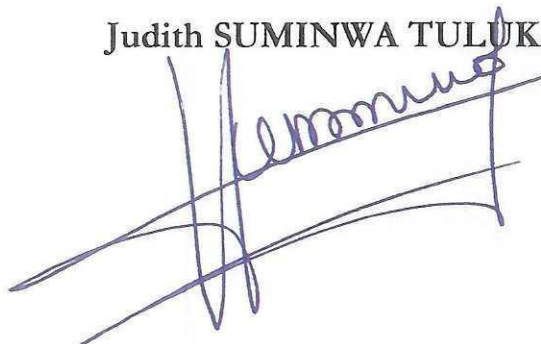 Judith SUMINWA TULUK